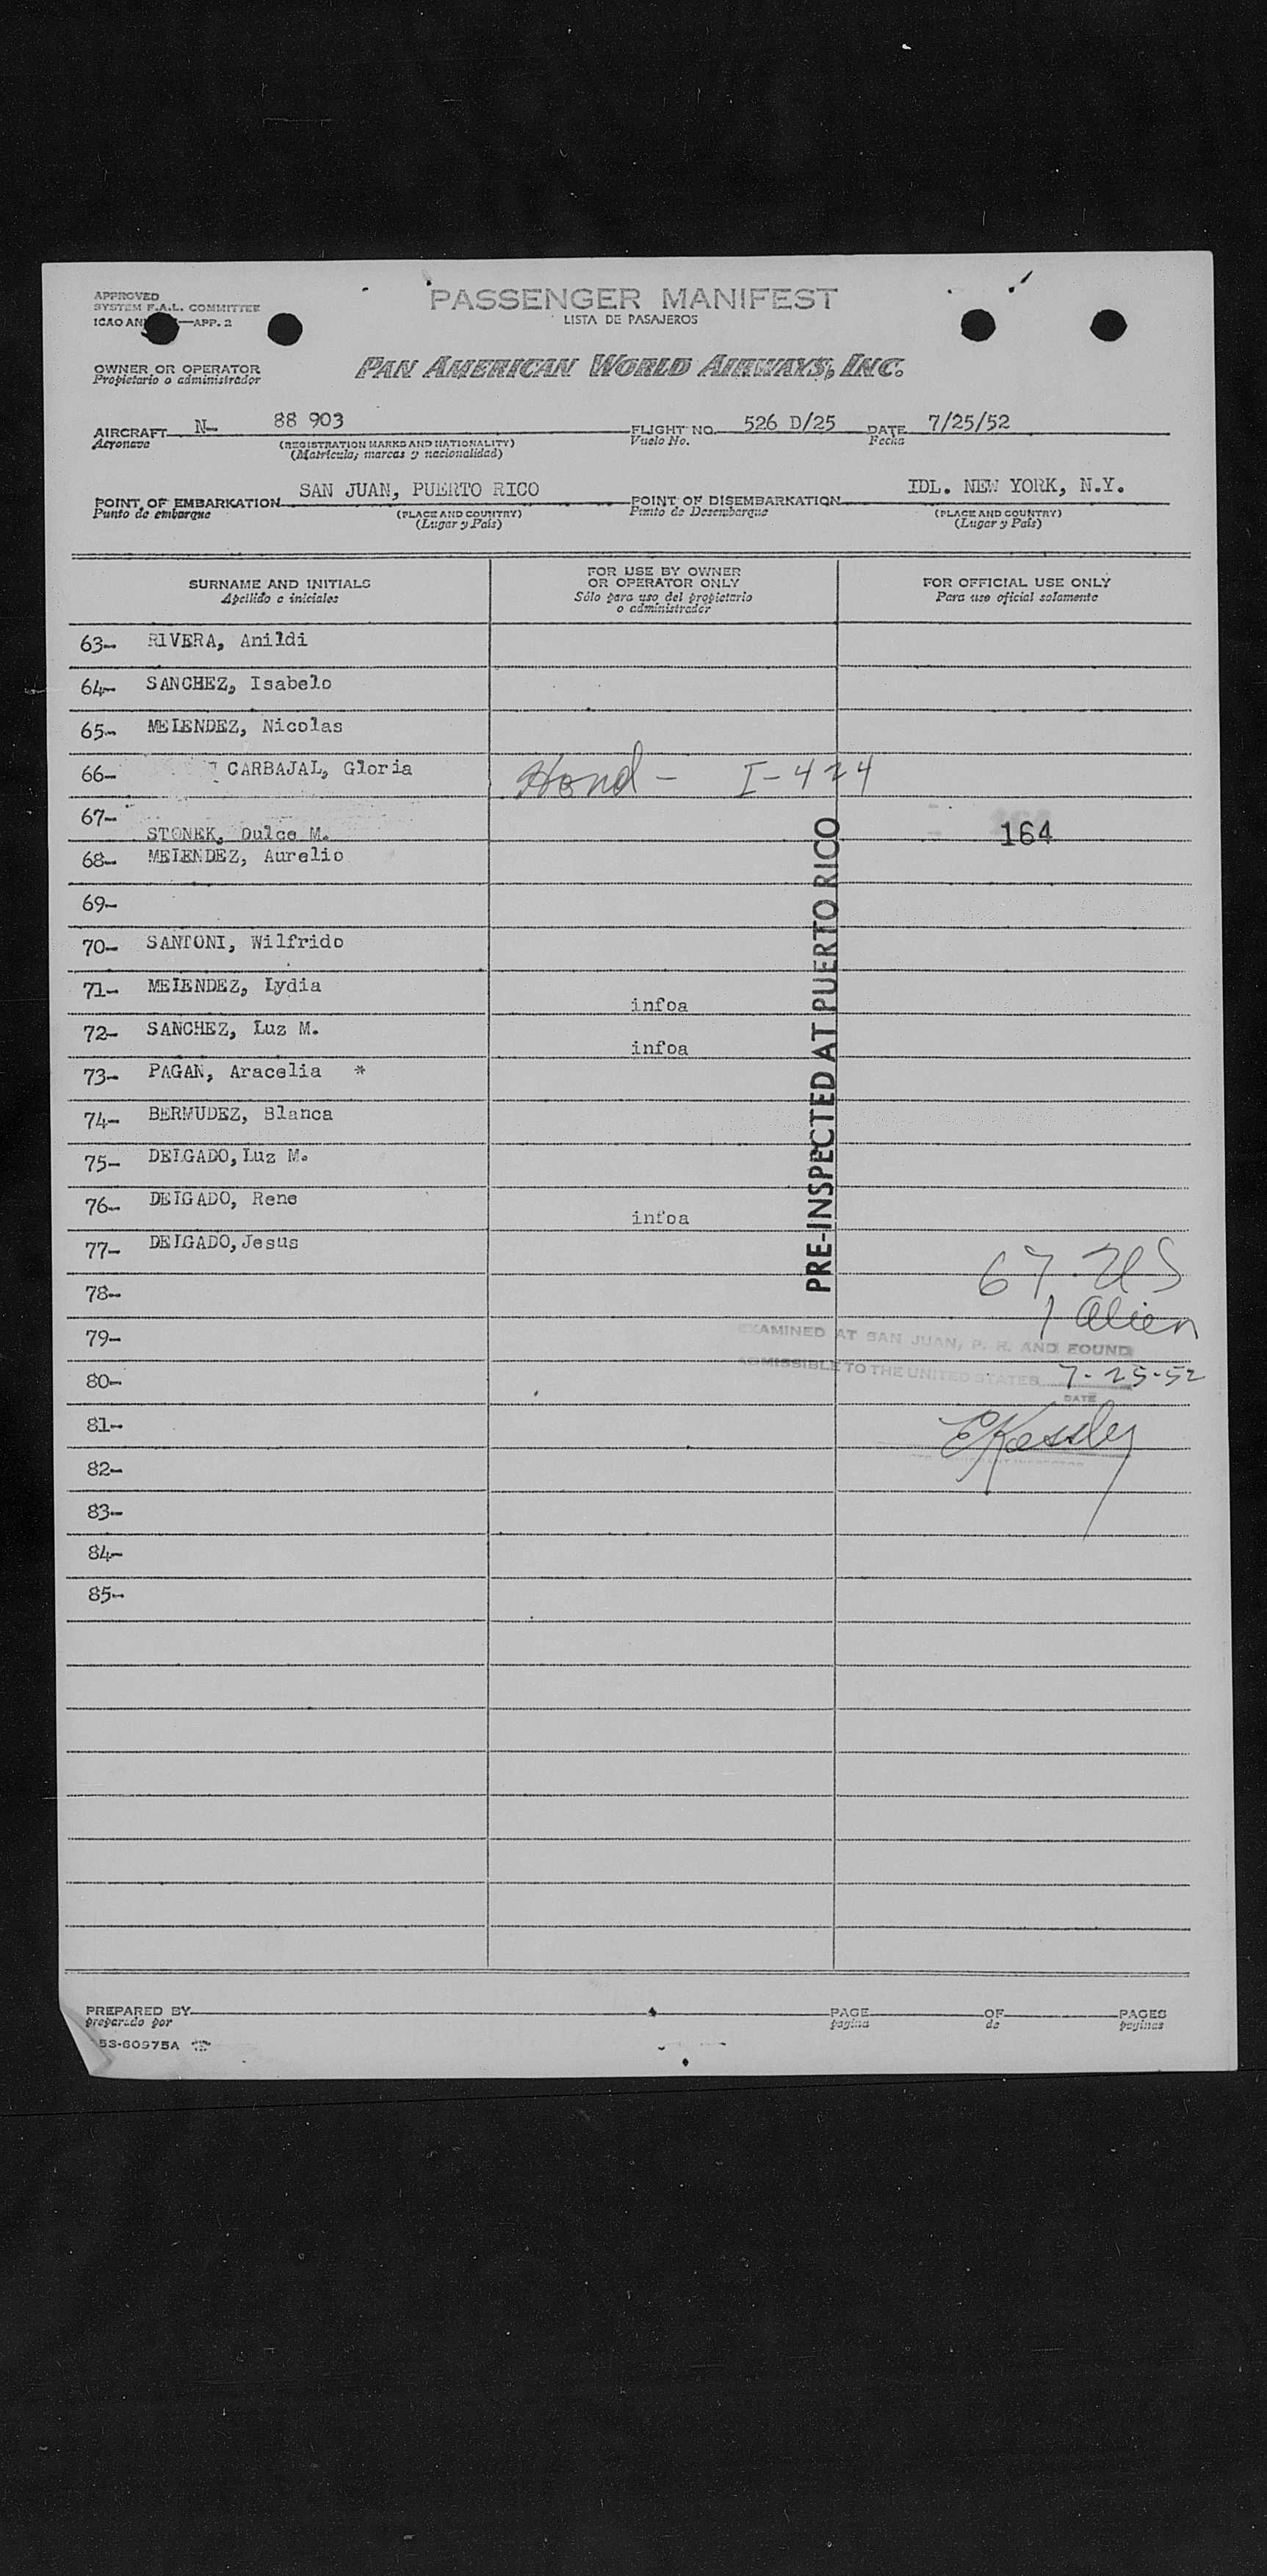 APPROVED
SYSTEM F.A.L. COMMITTEE
ICAO AN —APP. 2
PASSENGER MANIFEST
LISTA DE PASAJEROS
OWNER OR OPERATOR
Propietario o administrador
PAN AMERICAN WORLD AIRWAYS, INC.
AIRCRAFT N- 88 903 FLIGHT NO. 526 D/25 DATE 7/25/52
Aeronave (REGISTRATION MARKS AND NATIONALITY) Vuelo No. Fecha
(Matricula; marcas y nacionalidad)
POINT OF EMBARKATION SAN JUAN, PUERTO RICO POINT OF DISEMBARKATION IDL. NEW YORK, N.Y.
Punto de embarque (PLACE AND COUNTRY) Punto de Desembarque (PLACE AND COUNTRY)
(Lugar y País) (Lugar y País)
SURNAME AND INITIALS
Apellido e iniciales
FOR USE BY OWNER
OR OPERATOR ONLY
Sólo para uso del propietario
o administrador
FOR OFFICIAL USE ONLY
Para uso oficial solamente
63- RIVERA, Anildi
64- SANCHEZ, Isabelo
65- MELENDEZ, Nicolas
66- CARBAJAL, Gloria Hond - I-424
67- STONEK, Dulce M. 164
68- MELENDEZ, Aurelio
69-
70- SANTONI, Wilfrido
71- MELENDEZ, Lydia infoa
72- SANCHEZ, Luz M. infoa
73- PAGAN, Aracelia *
74- BERMUDEZ, Blanca
75- DELGADO, Luz M.
76- DELGADO, Rene infoa
77- DELGADO, Jesus
PRE-INSPECTED AT PUERTO RICO
67 US
78-
1 Alien
79-
EXAMINED AT SAN JUAN, P. R. AND FOUND
ADMISSIBLE TO THE UNITED STATES 7-25-52
DATE
80-
81-
EKessler
82-
83-
84-
85-
PREPARED BY PAGE OF PAGES
preparado por pagina de paginas
53-60975A